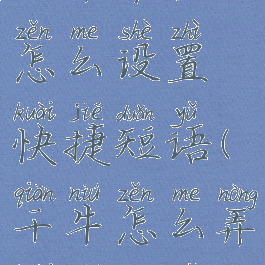 zěn me shè zhì
怎么设置
kuài jié duǎn yǔ
快捷短语(
qiān niú zěn me nòng
千牛怎么弄